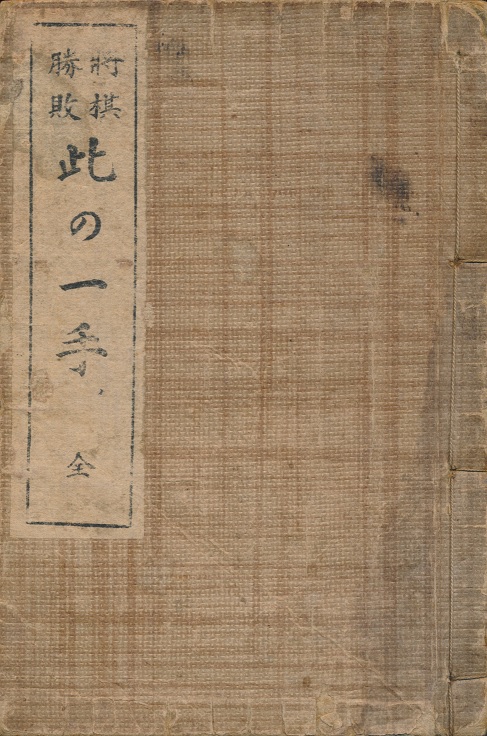 将棋
勝敗
此の一手
全